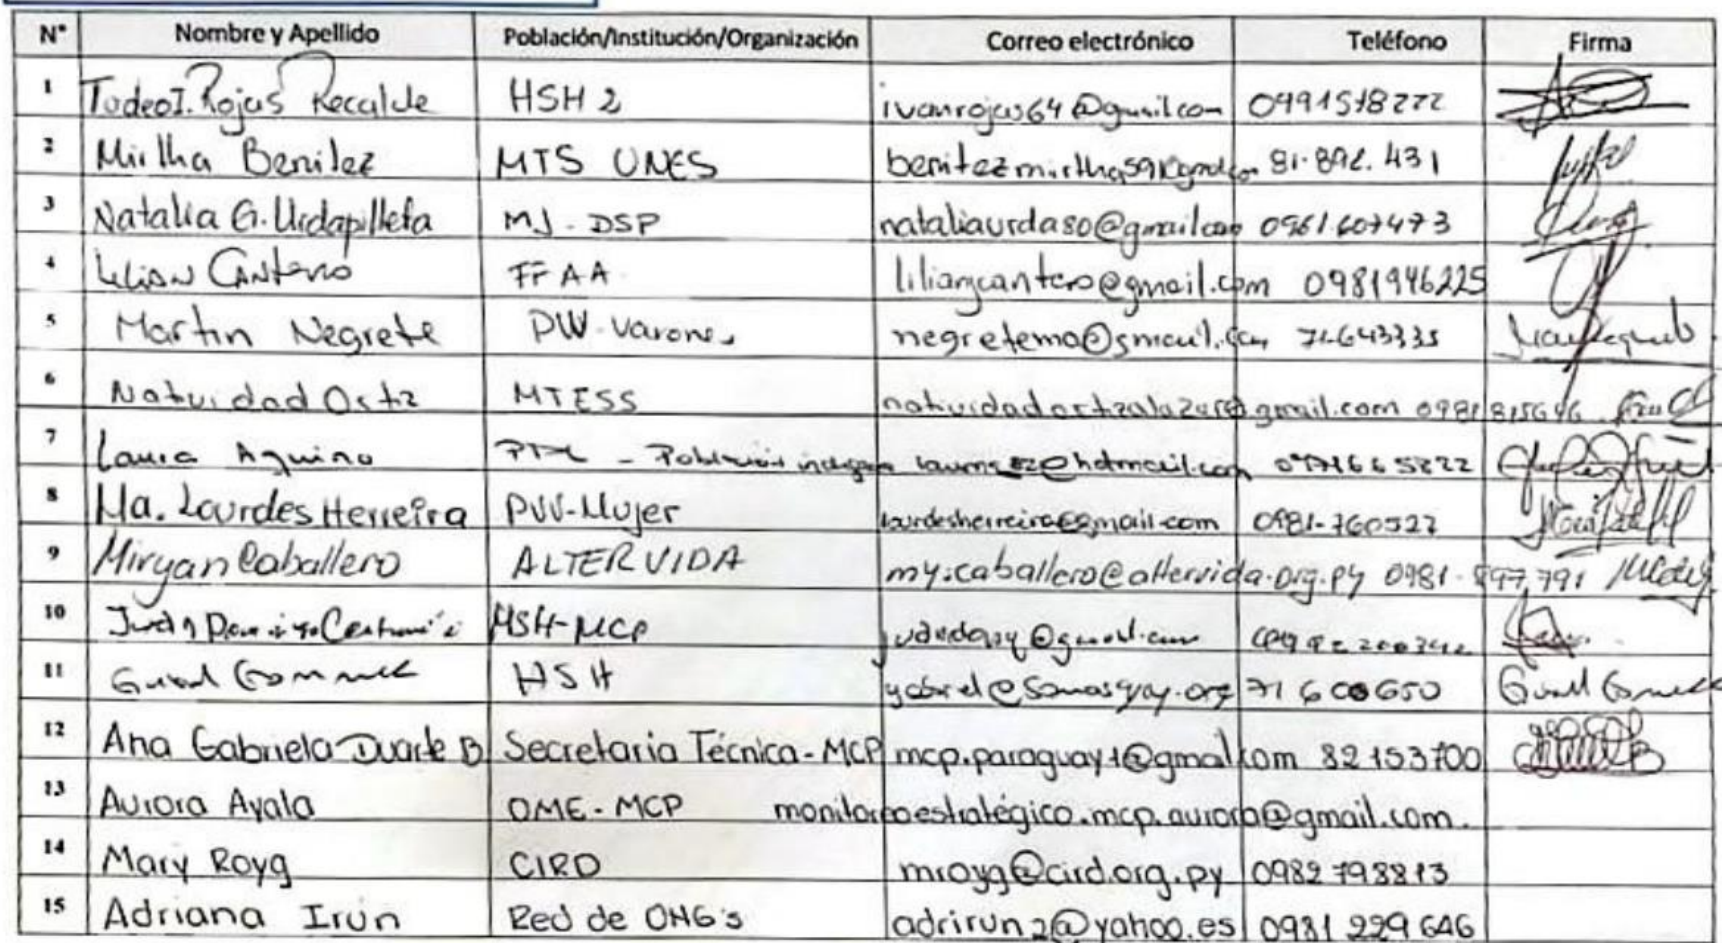 N° Nombre y Apellido Población/Institución/Organización Correo electrónico Teléfono Firma
1 TadeoI. Rojas Recalde HSH 2 ivanrojas64@gmail.com 0991518222
2 Mirtha Benitez MTS UNES 81-892.431
3 Natalia G. Urdapilleta MJ - DSP nataliaurda80@gmail.com 0961.607473
4 Lilian Cantero FFAA liliancantero@gmail.com 0981946225
5 Martin Negrete PVV-Varones negretema@gmail.com 71-643335
6 Natividad Ortiz MTESS 0981815646
7 Laura Aquino Población
8 Ma. Lourdes Herreira PVV-Mujer lourdesherreira@gmail.com 0981-760527
9 Miryan Caballero ALTER VIDA my.caballero@altervida.org.py 0981-897,791
10 HSH-MCP
11 HSH gabriel@somosgay.org 71 600650
12 Ana Gabriela Duarte B Secretaria Técnica-MCP mcp.paraguay1@gmail.com 82 153700
13 Aurora Ayala OME-MCP monitoreoestratégico.mcp.aurora@gmail.com.
14 Mary Royg CIRD mroyg@cird.org.py 0982 798813
15 Adriana Irún Red de ONG's adrirun2@yahoo.es 0981 229 646